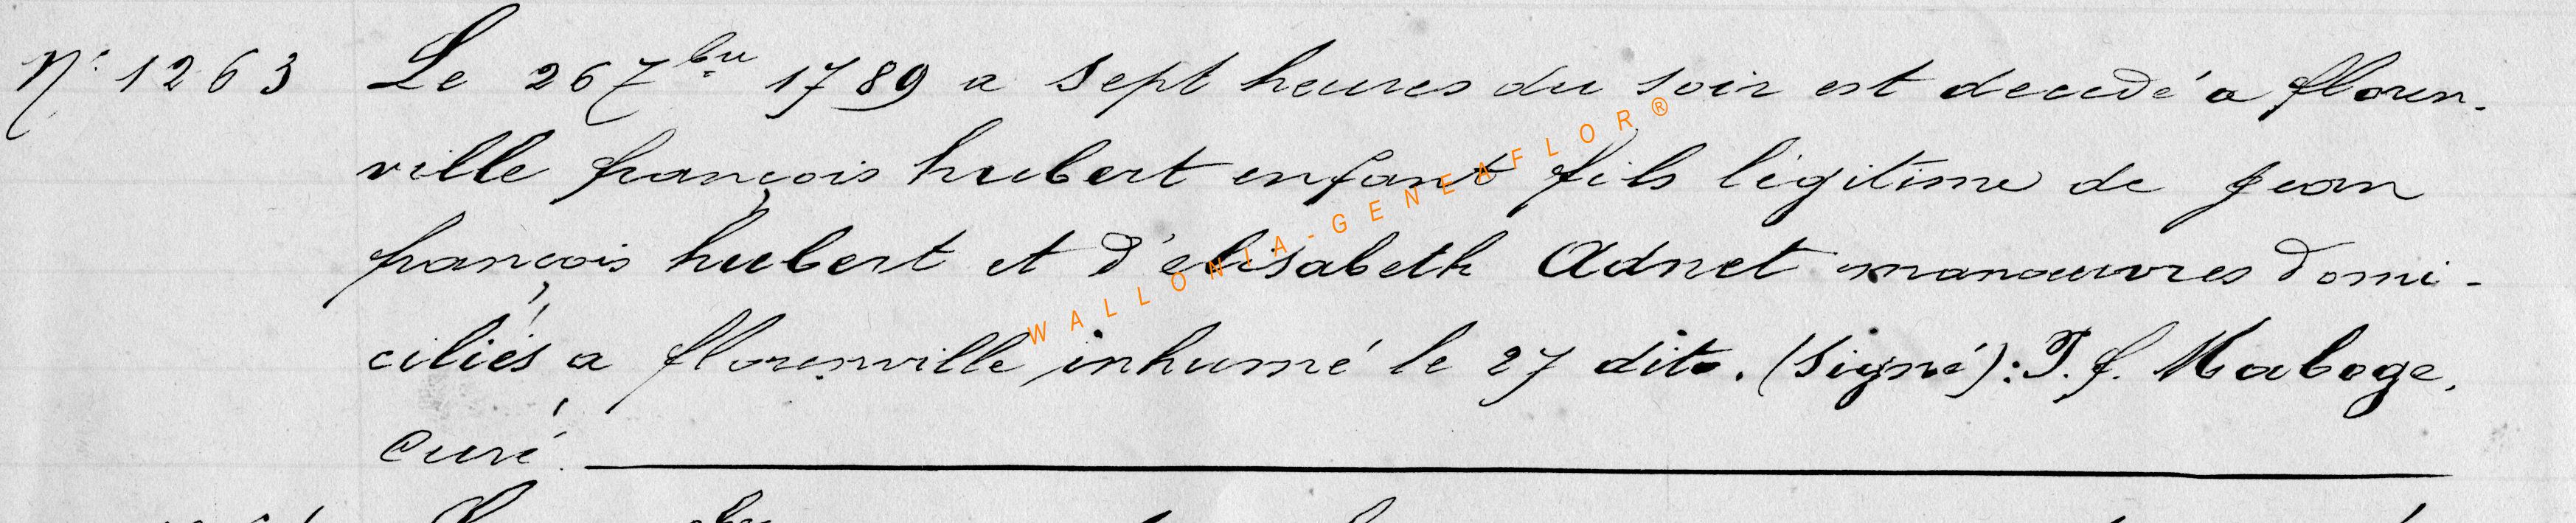 N° 1263 Le 26 7bre 1789 a sept heures du soir est decedé a floren-
ville françois hubert enfant fils légitime de jean
françois hubert et d'elisabeth Adnet manœuvres domi-
ciliés a florenville inhumé le 27 dito. (signé): J. f. Maboge,
Curé.
WALLONIA-GENEAFLOR®